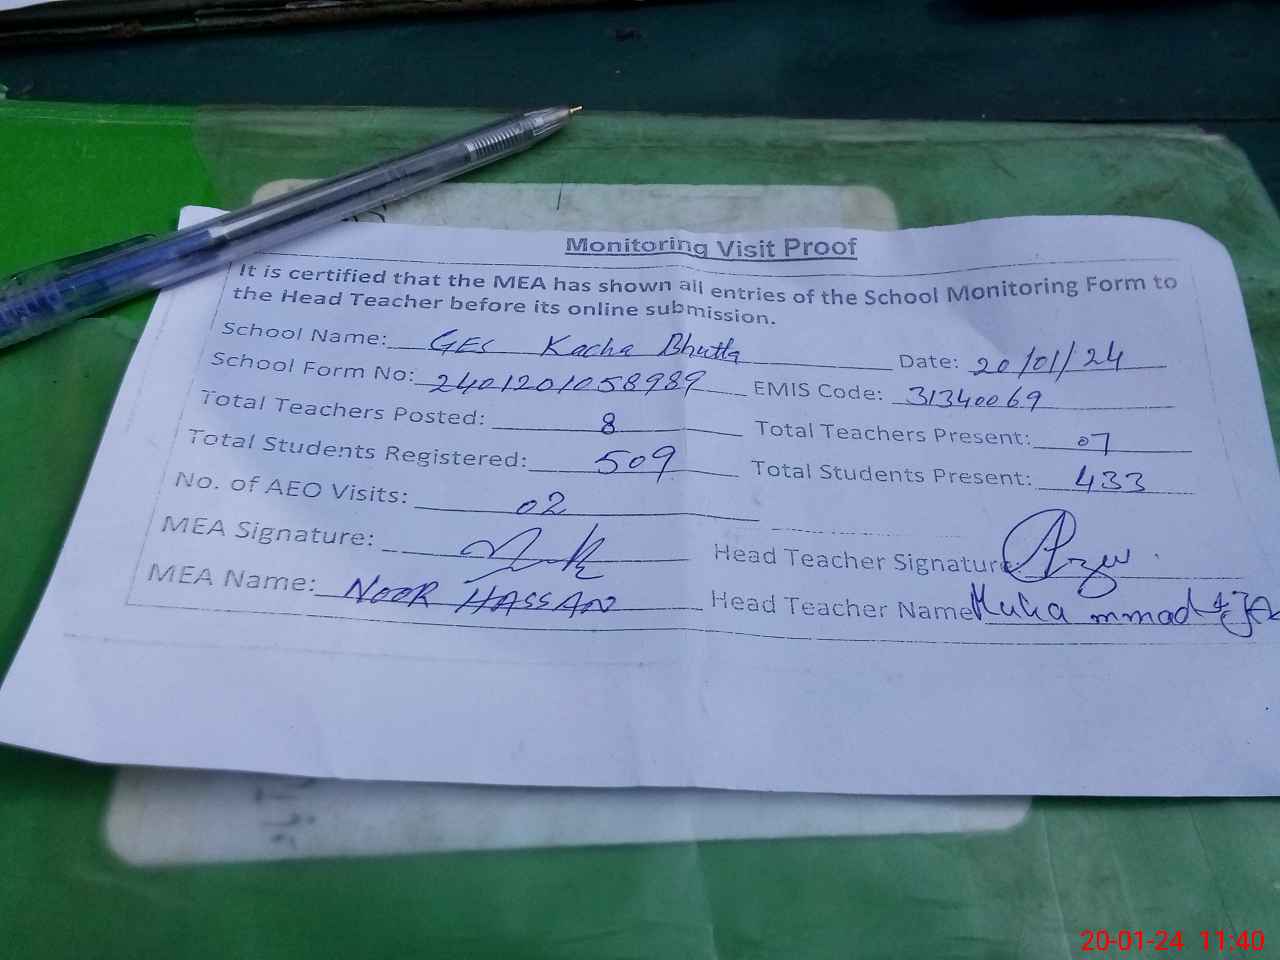 Monitoring Visit Proof
It is certified that the MEA has shown all entries of the School Monitoring Form to
the Head Teacher before its online submission.
School Name: GES Kacha Bhutta Date: 20/01/24
School Form No: 2401201058989 EMIS Code: 31340069
Total Teachers Posted: 8 Total Teachers Present: 07
Total Students Registered: 509 Total Students Present: 433
No. of AEO Visits: 02
MEA Signature: Head Teacher Signature:
MEA Name: NOOR HASSAN Head Teacher Name Muhammad
20-01-24 11:40